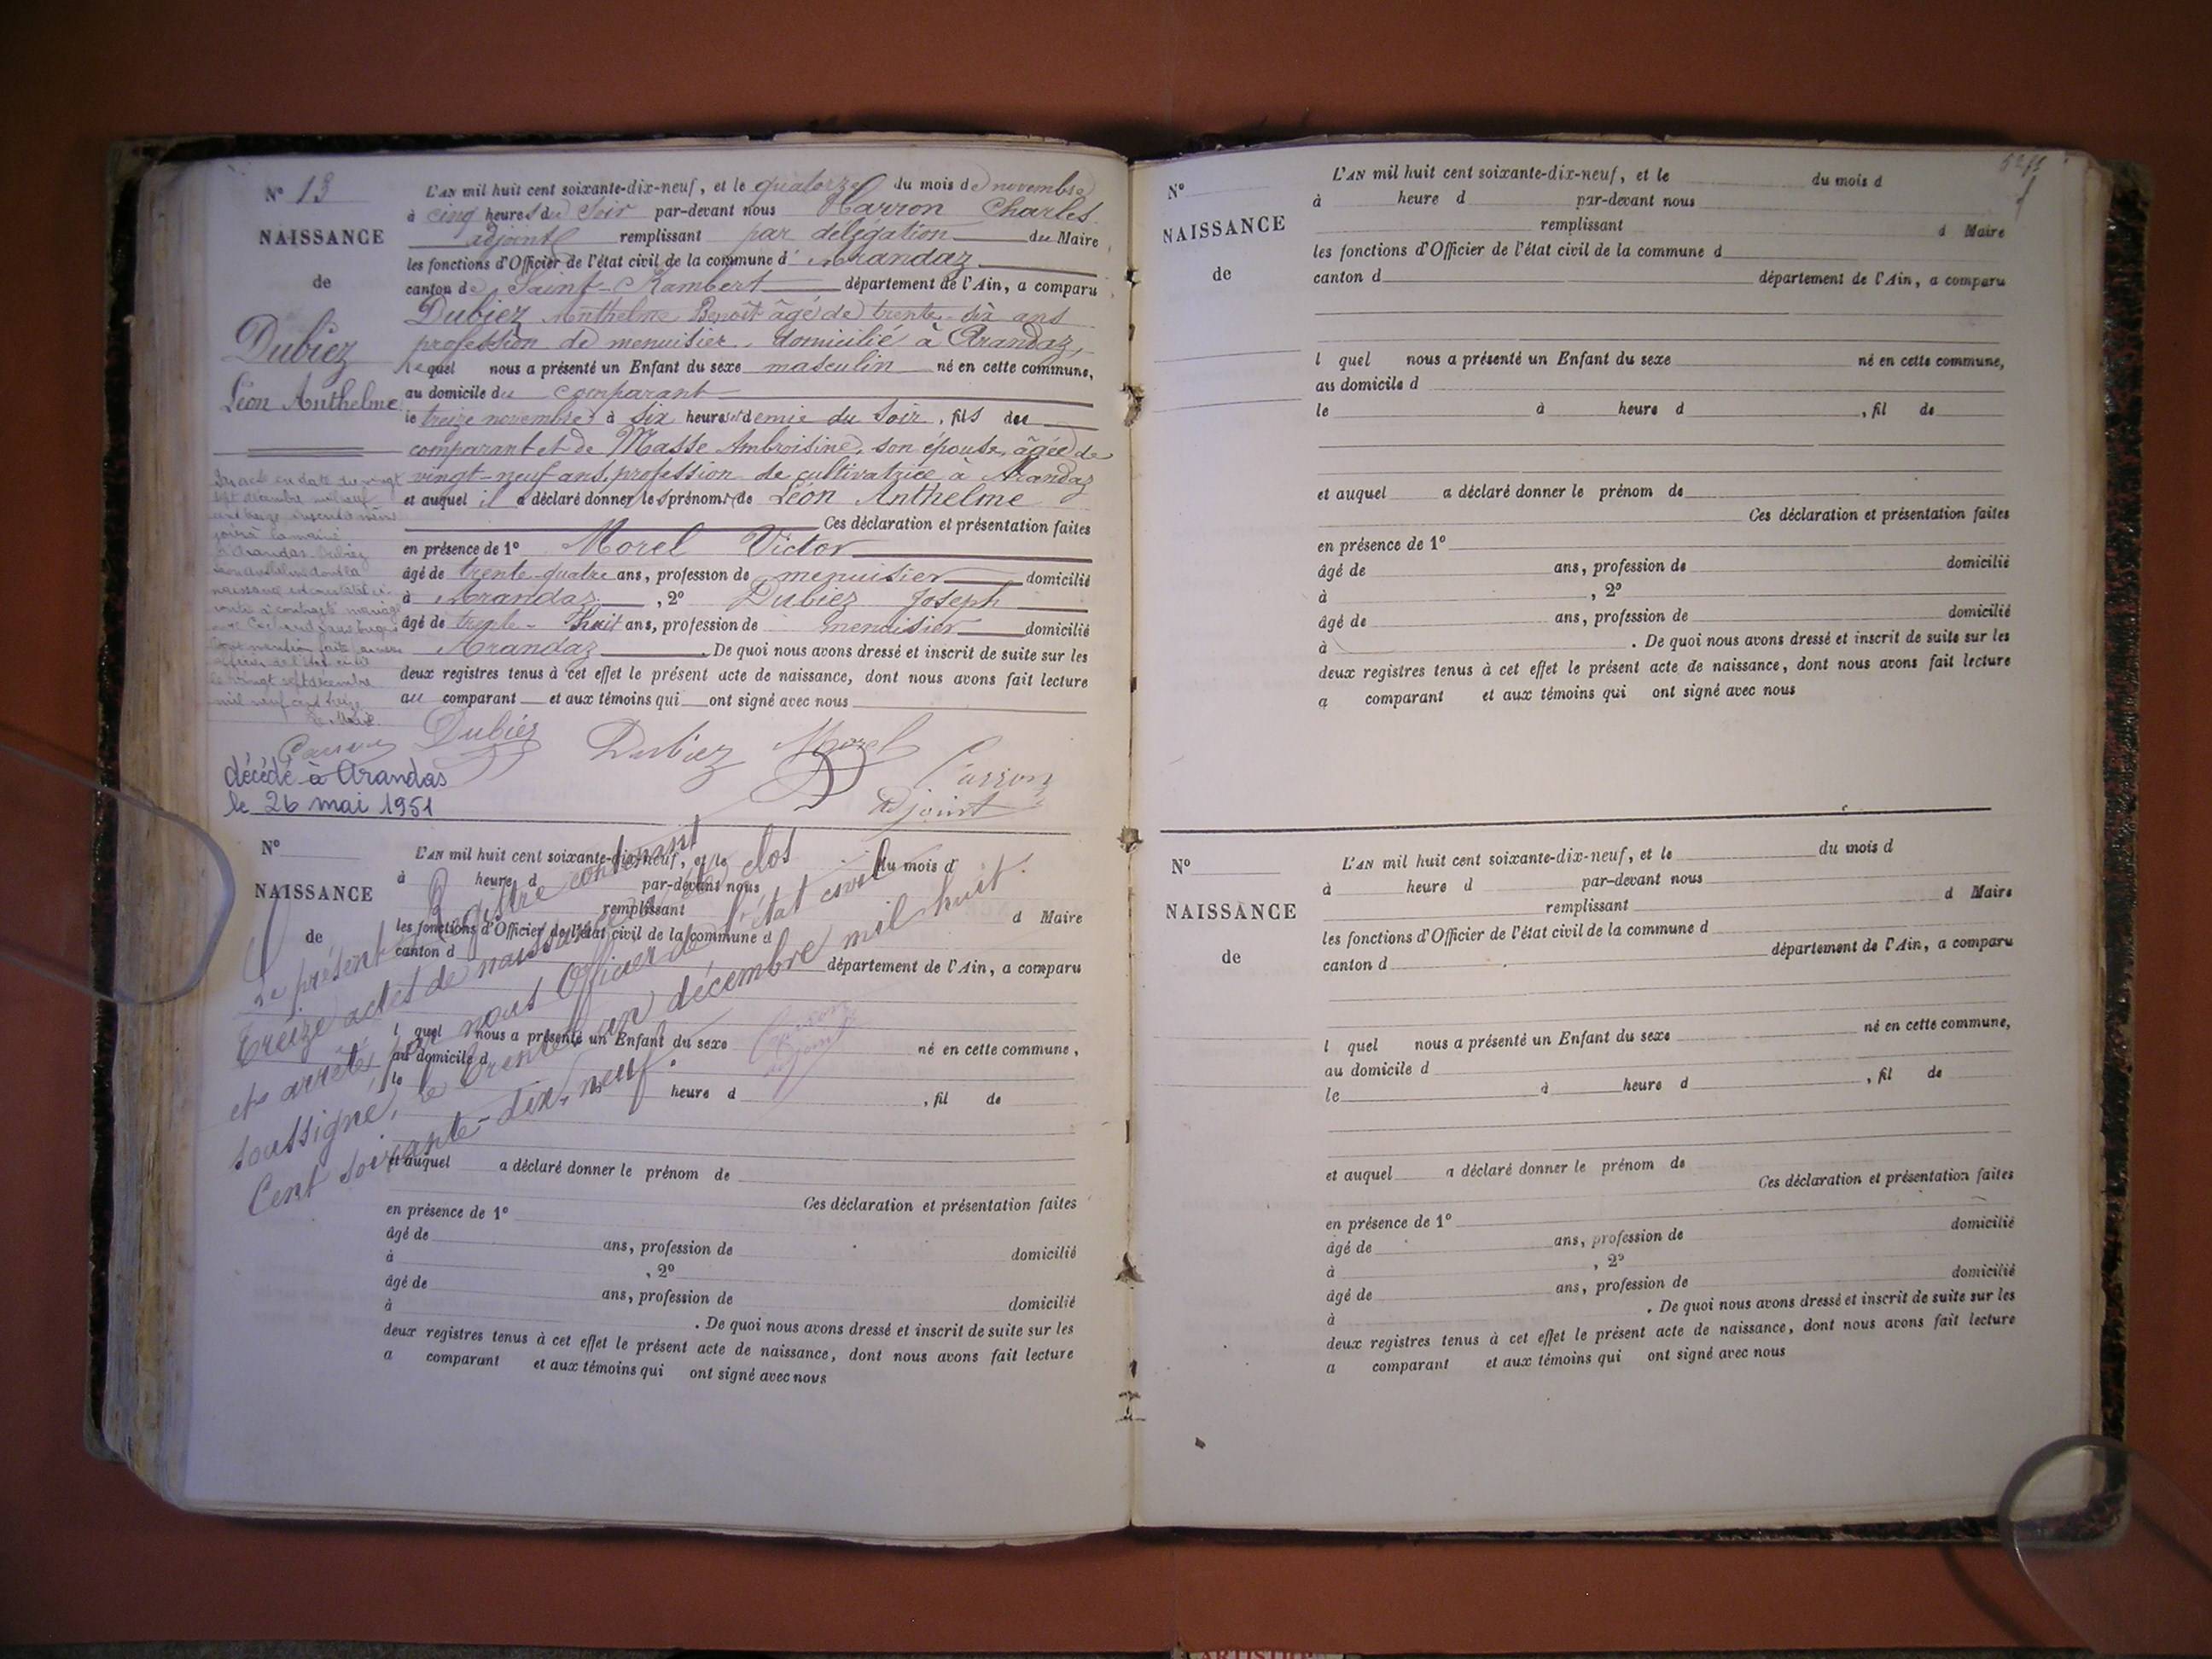 N° 13
NAISSANCE
de
Dubiez
Léon Anthelme
L'AN mil huit cent soixante-dix-neuf, et le quatorze du mois de novembre
à cinq heures du soir par-devant nous Carron Charles
adjoint remplissant par délégation du Maire
les fonctions d'Officier de l'état civil de la commune d' Arandaz
canton de Saint-Rambert département de l'Ain, a comparu
Dubiez Anthelme Benoît âgé de trente-six ans
profession de menuisier, domicilié à Arandaz,
lequel nous a présenté un Enfant du sexe masculin né en cette commune,
au domicile du comparant
le treize novembre à six heures et demie du soir, fils du
comparant et de Masse Ambroisine, son épouse, âgée de
vingt-neuf ans, profession de cultivatrice à Arandaz
et auquel il a déclaré donner les prénoms de Léon Anthelme
Ces déclaration et présentation faites
en présence de 1° Morel Victor
âgé de trente-quatre ans, profession de menuisier domicilié
à Arandaz, 2° Dubiez Joseph
âgé de trente-huit ans, profession de menuisier domicilié
Arandaz. De quoi nous avons dressé et inscrit de suite sur les
deux registres tenus à cet effet le présent acte de naissance, dont nous avons fait lecture
au comparant et aux témoins qui ont signé avec nous
Par acte en date du vingt
sept décembre mil neuf
cent treize
à la mairie
d'Arandas Dubiez
Léon Anthelme dont la
naissance est constatée ci
contre a contracté mariage
avec
mention faite
officier de l'état civil
le vingt sept décembre
mil neuf cent treize
Le Maire
Dubiez Dubiez Morel Carron
Adjoint
décédé à Arandas
le 26 mai 1951
N°
NAISSANCE
de
L'AN mil huit cent soixante-dix-neuf, et le du mois d
à heure d par-devant nous
remplissant d Maire
les fonctions d'Officier de l'état civil de la commune d
canton d département de l'Ain, a comparu
l quel nous a présenté un Enfant du sexe né en cette commune,
au domicile d
le heure d , fil de
et auquel a déclaré donner le prénom de
Ces déclaration et présentation faites
en présence de 1°
âgé de ans, profession de domicilié
à , 2°
âgé de ans, profession de domicilié
à . De quoi nous avons dressé et inscrit de suite sur les
deux registres tenus à cet effet le présent acte de naissance, dont nous avons fait lecture
a comparant et aux témoins qui ont signé avec nous
Le présent Registre contenant
treize actes de naissance a été clos
et arrêté, par nous Officier de l'état civil
soussigné, le trente-un décembre mil huit
cent soixante-dix-neuf.
Carron
adjoint
N°
NAISSANCE
de
L'AN mil huit cent soixante-dix-neuf, et le du mois d
à heure d par-devant nous
remplissant d Maire
les fonctions d'Officier de l'état civil de la commune d
canton d département de l'Ain, a comparu
l quel nous a présenté un Enfant du sexe né en cette commune,
au domicile d
le à heure d , fil de
et auquel a déclaré donner le prénom de
Ces déclaration et présentation faites
en présence de 1°
âgé de ans, profession de domicilié
à , 2°
âgé de ans, profession de domicilié
à . De quoi nous avons dressé et inscrit de suite sur les
deux registres tenus à cet effet le présent acte de naissance, dont nous avons fait lecture
a comparant et aux témoins qui ont signé avec nous
N°
NAISSANCE
de
L'AN mil huit cent soixante-dix-neuf, et le du mois d
à heure d par-devant nous
remplissant d Maire
les fonctions d'Officier de l'état civil de la commune d
canton d département de l'Ain, a comparu
l quel nous a présenté un Enfant du sexe né en cette commune,
au domicile d
le à heure d , fil de
et auquel a déclaré donner le prénom de
Ces déclaration et présentation faites
en présence de 1°
âgé de ans, profession de domicilié
à , 2°
âgé de ans, profession de domicilié
à . De quoi nous avons dressé et inscrit de suite sur les
deux registres tenus à cet effet le présent acte de naissance, dont nous avons fait lecture
a comparant et aux témoins qui ont signé avec nous